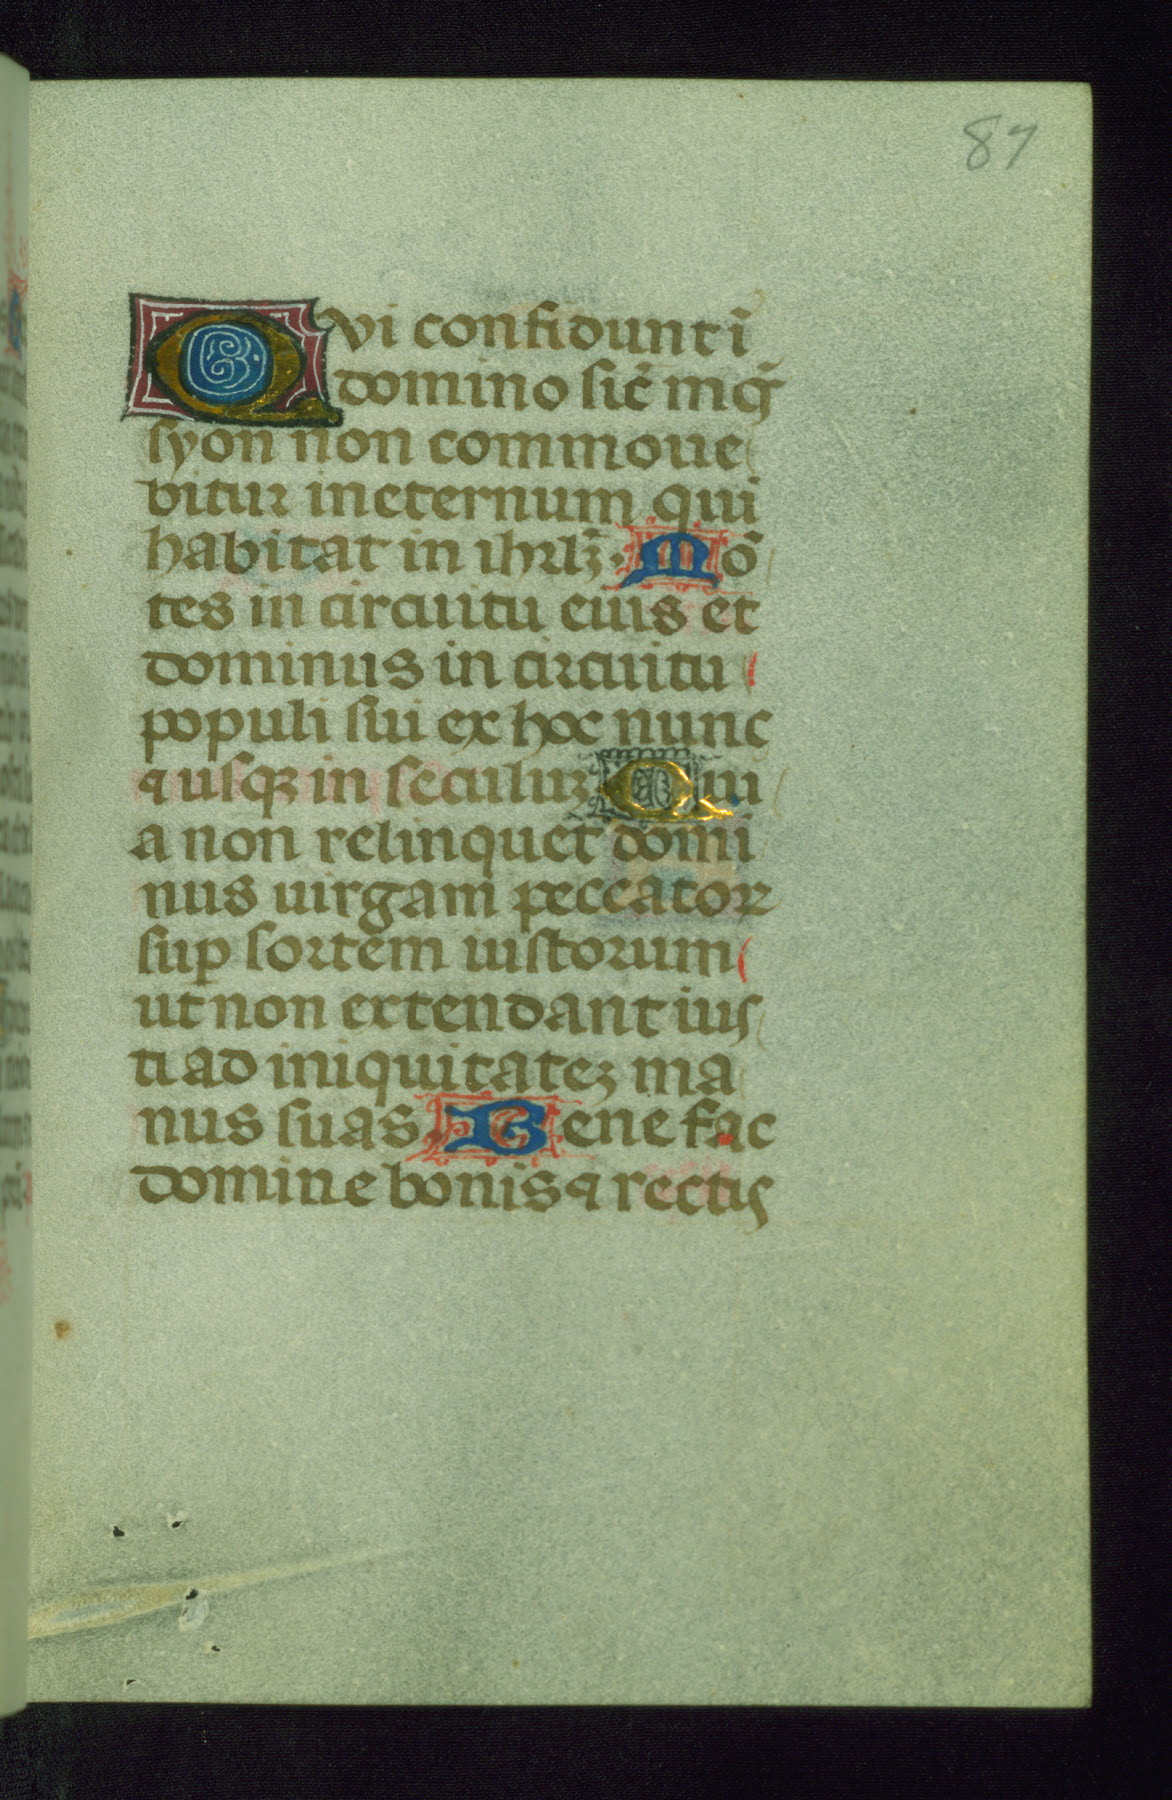 87
Qvi confidunt ī
domino sic̄ mōs
syon non commoue
bitur ineternum qui
habitat in ihrlꝫ̄. Mō
tes in circuitu eius et
dominus in circuitu
populi sui ex hoc nunc
⁊ usqꝫ in seculuꝫ Qui
a non relinquet domi
nus uirgam peccatoꝝ
suꝑ sortem iustorum
ut non extendant ius
ti ad iniquitateꝫ ma
nus suas Bene fac
domine bonis ⁊ rectis